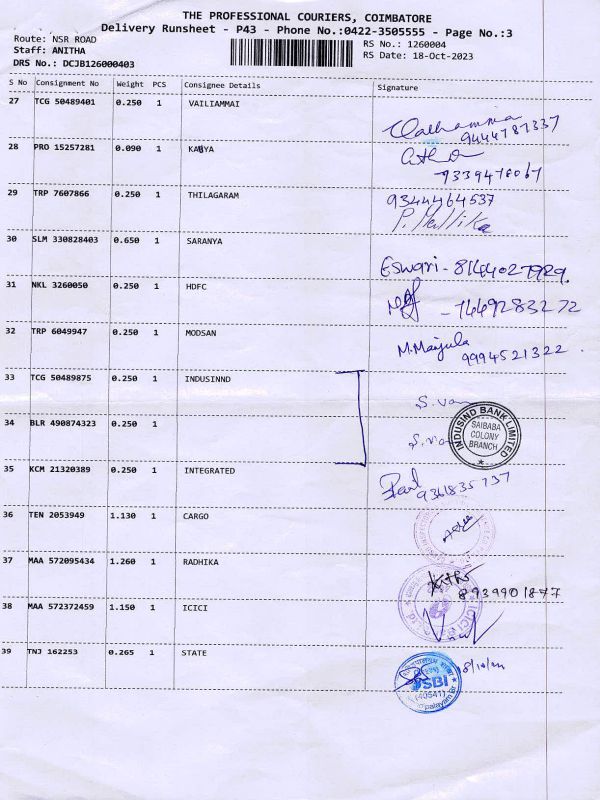 THE PROFESSIONAL COURIERS, COIMBATORE
Delivery Runsheet - P43 - Phone No.:0422-3505555 - Page No.:3
Route: NSR ROAD RS No.: 1260004
Staff: ANITHA RS Date: 18-Oct-2023
DRS No.: DCJB126000403
S No Consignment No Weight PCS Consignee Details Signature
27 TCG 50489401 0.250 1 VAILIAMMAI
9444787337
28 PRO 15257281 0.090 1 KAVYA
29 TRP 7607866 0.250 1 THILAGARAM 9344464537
P. Mallika
30 SLM 330828403 0.650 1 SARANYA
Eswari - 8144027989.
31 NKL 3260050 0.250 1 HDFC
- 7449283272
32 TRP 6049947 0.250 1 MODSAN
9994521322
33 TCG 50489875 0.250 1 INDUSINND
34 BLR 490874323 0.250 1
INDUSIND BANK LIMITED
SAIBABA
COLONY
BRANCH
35 KCM 21320389 0.250 1 INTEGRATED
9361835737
36 TEN 2053949 1.130 1 CARGO
37 MAA 572095434 1.260 1 RADHIKA
8939901877
38 MAA 572372459 1.150 1 ICICI
39 TNJ 162253 0.265 1 STATE
SBI
(40541)